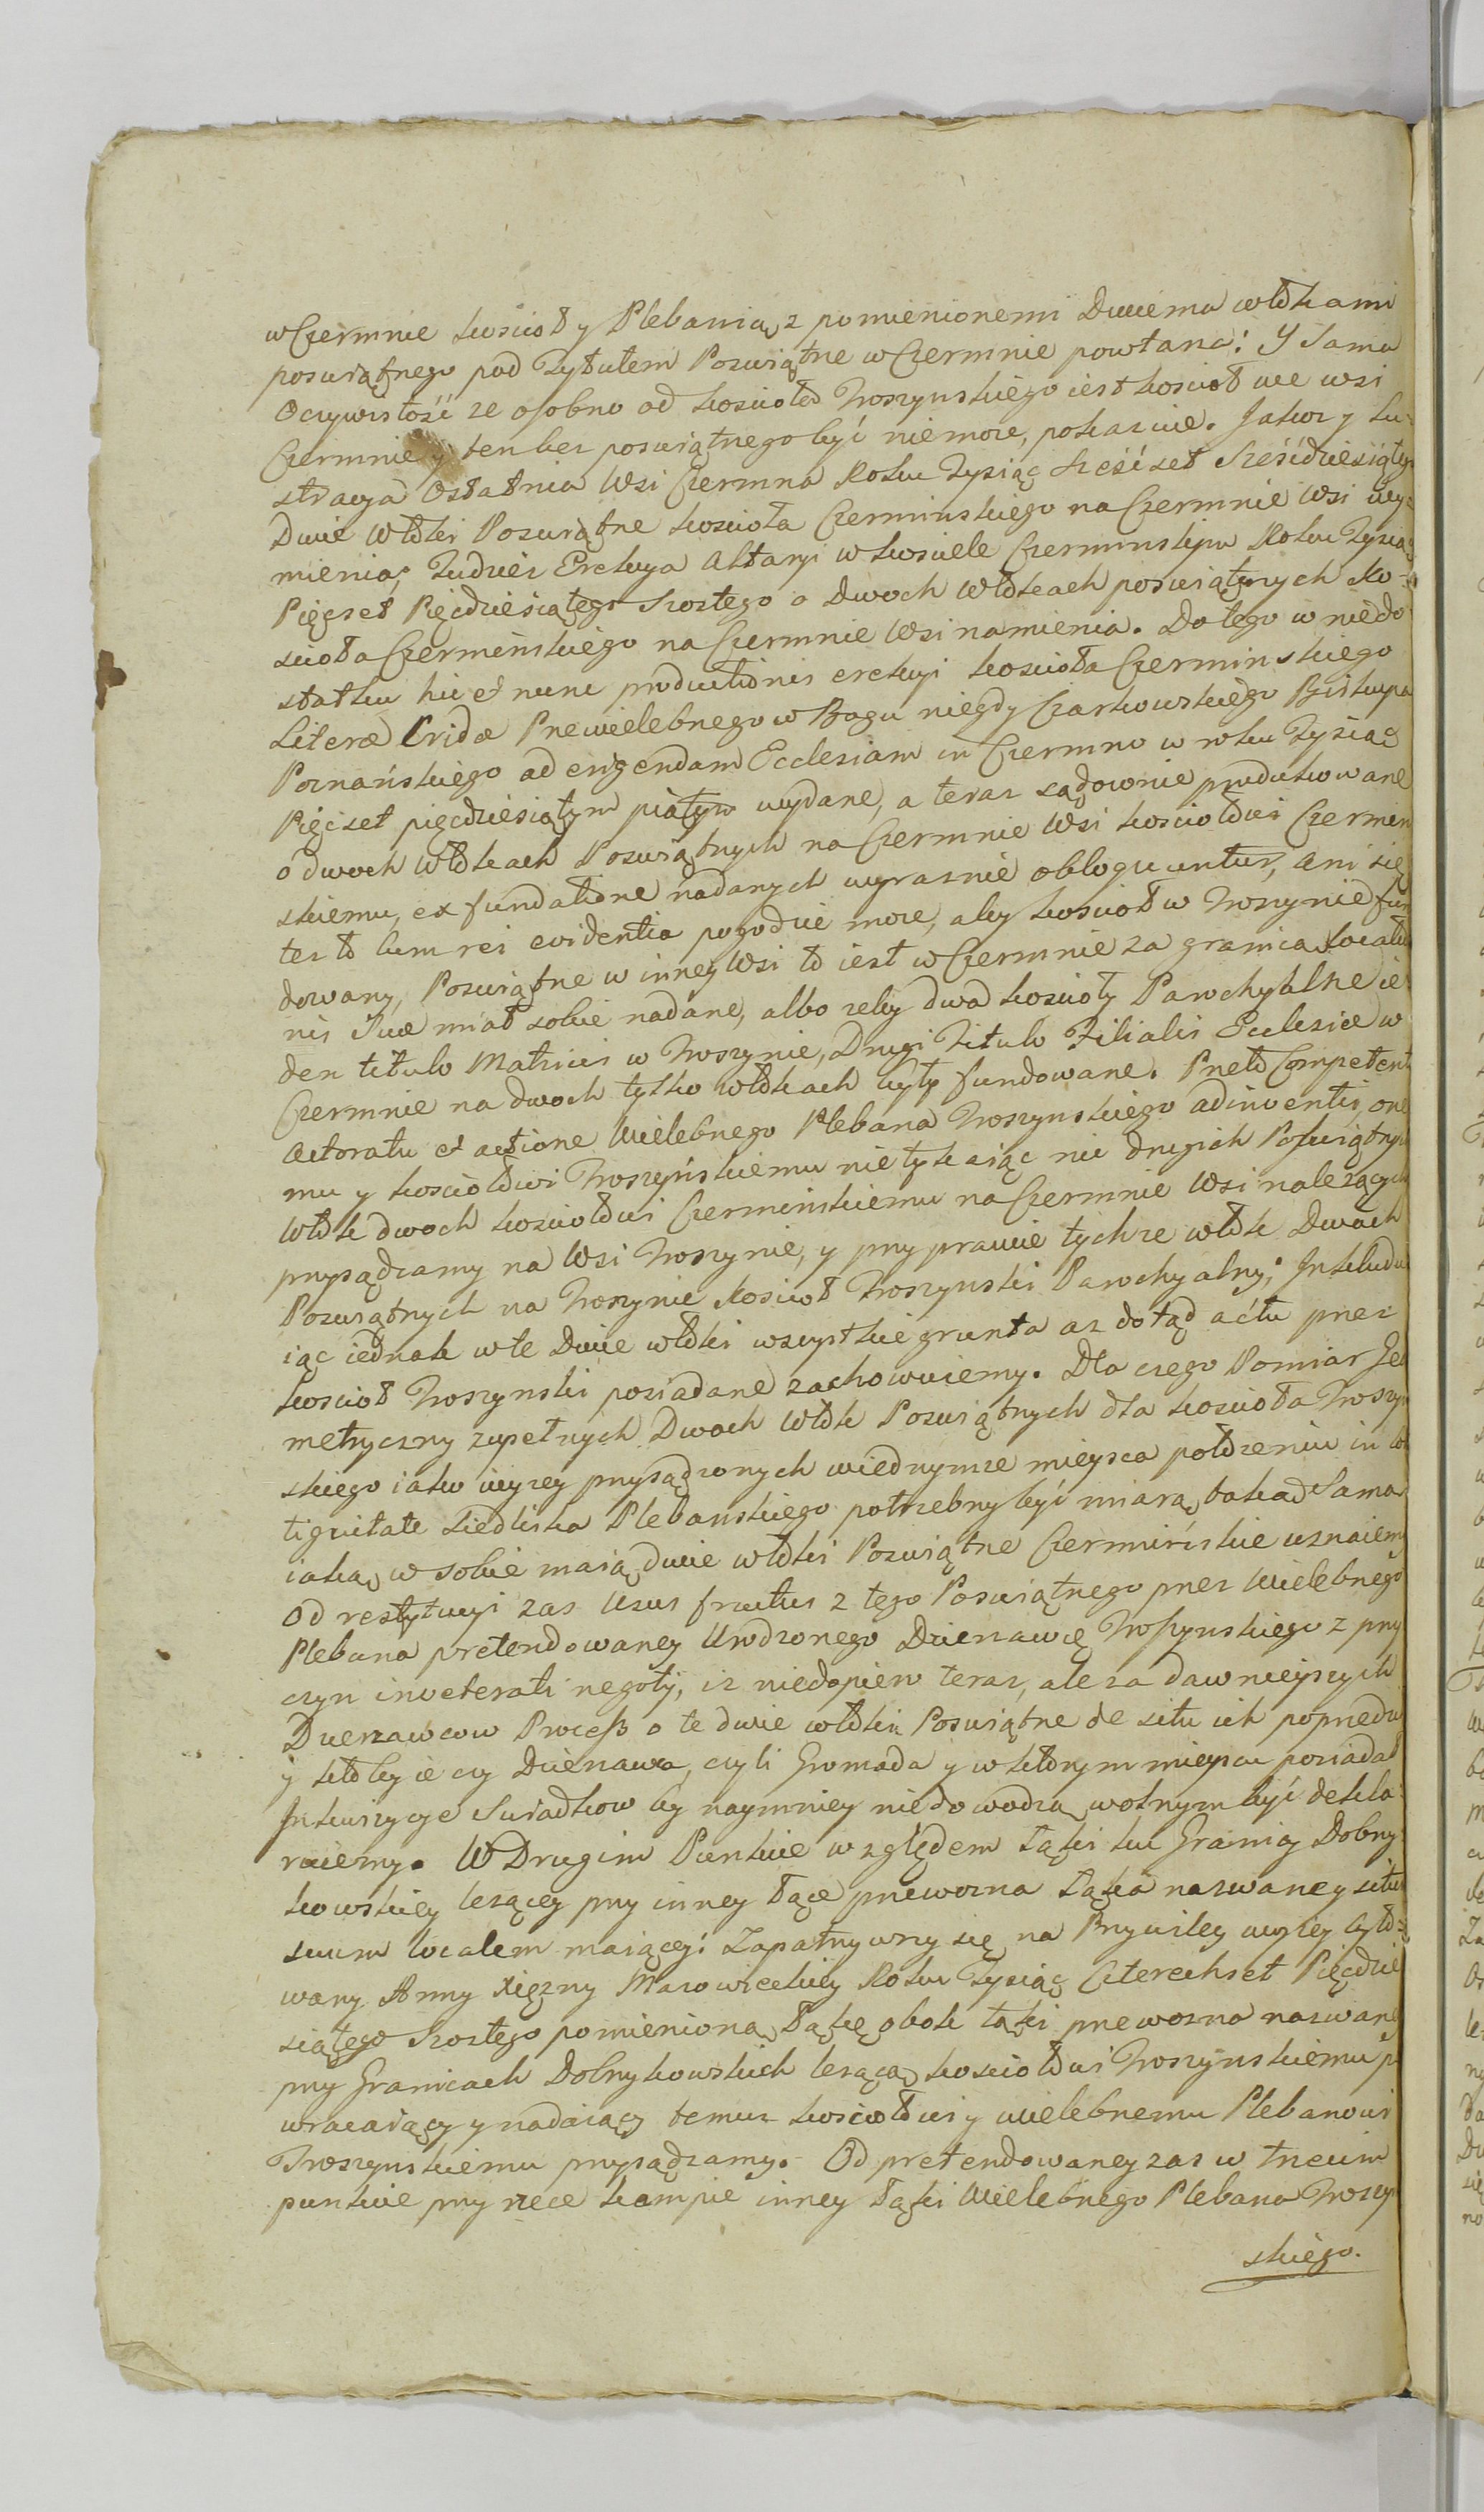 w Czermnie kościoł y Plebanią z pomienionemi Dwiema włokami
poswiątnego pod Tytułem Poswiątne w Czermnie powstana: Y Sama
Oczywistość ze osobno od kosciołā Troszynskiego iest kościoł we wsi
Czermnie y ten bez poswiątnego być niemoze, pokazuie. Jakoz y Lu-
stracya Ostatnia Wsi Czermna Roku Tysiąc Sześćset Sześćdziesiątym
Dwie Włoki Poswiątne kościoła Czerminskiego na Czermnie Wsi wy-
mienia; Tudzież Erekcya Altaryi w kościele Czerminskim Roku Tysiąc
Pięcset Pięcdziesiątego Szostego o Dwoch Włokach poswiątnych Ko-
scioła Czermińskiego na Czermnie Wsi namienia. Do tego w niedo
statku hic et nunc productionis erekcyi kościoła Czerminskiego
Literæ Cridæ Przewielebnego w Bogu niegdy Czarkowskiego Biskupa
Poznańskiego ad erigendam Ecclesiam in Czermno w roku Tysiąc
Pięcset pięcdziesiątym piątym wydane, a teraz sądownie produkowane
o dwoch Włokach Poswiątnych na Czermnie Wsi kościołowi Czermin
skiemu, ex fundatione nadanych wyraznie obloquuntur, ani się
tez to cum rei evidentia pogodzic moze, aby kościoł w Troszynie fun
dowany, Poswiątne w inney Wsi to iest w Czermnie za granicą locatio
nis suæ miał sobie nadane, albo zeby dwa kościoły Parochyalne ie
den titulo Matricis w Troszynie, Drugi Titulo Filialis Ecclesiæ w
Czermnie na dwoch tylko włokach były fundowane. Przeto Competenti
Actoratu et actione Wielebnego Plebana Troszynskiego adinventis one
mu y kościołowi Troszyńskiemu nietykaiąc nic drugich Poswiątnych
Włok dwoch kościołowi Czermińskiemu na Czermnie Wsi nalezących
przysądzamy na Wsi Troszynie, y przy prawie tychze włok Dwoch
Poswiątnych na Troszynie Kosciół Troszynski Parochyalny; Inkludu
iąc iednak w te Dwie włoki wszystkie grunta az dotąd actu przez
kościoł Troszynski posiadane zachowuiemy. Dla czego Pomiar Geo
metryczny zupełnych Dwoch Włok Poswiątnych dla kościoła Troszyn
skiego iako wyzey przysądzonych wiednymze mieysca połozeniu in con
tiguitate siedliska Plebanskiego potrzebny być miarą taką Samą
iaką w sobie maią dwie włoki Poswiątne Czermińskie uznaiemy
Od restytucyi zas Usus fructus z tego Poswiątnego przez Wielebnego
Plebana pretendowaney Urodzonego Dzierzawcę Troszynskiego z przy
czyn inveterati negotii, iz niedopiero teraz, ale za dawnieyszych
Dzierzawcow Process o te dwie włoki Poswiątne de situ ich poprzedza
y ktoby ie czy Dzierzawca, czyli Gromada y w ktorym mieyscu posiadał
Inkwizycye Swiadkow by naymniey niedowodzą wolnym być dekla-
ruiemy. W Drugim Punkcie względem Łąki ku Granicy Dobrzy
kowskiey lezącey przy inney łące przewozna Łąka nazwaney situm
suum localem maiącey; Zapatrzywszy się na Przywiley wyzey cyto-
wany Anny Xiężny Mazowieckiey Roku Tysiąc Czterechset Pięcdzie
siątego Szostego pomienioną Łąkę obok łąki przewozna nazwaney
przy Granicach Dobrzykowskich lezącą kościołowi Troszyńskiemu po
wracaiący y nadaiący temuz kościołowi y wielebnemu Plebanowi
Troszynskiemu przysądzamy. Od pretendowaney zas w trzecim
punkcie przy rzece kempie inney łąki Wielebnego Plebana Troszyn
skiego.